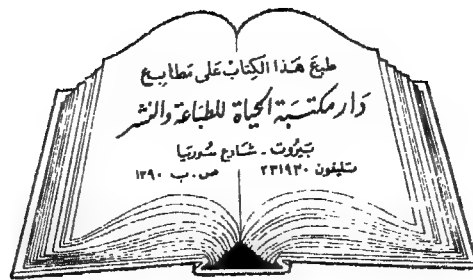 طبع هَذا الكِتابْ عَلى مَطابع
دَار مكتبَة الحيَاة للطبَاعة والنشر
بَيرُوت - شارع سُوريَا
تليفون ٢٣١٩٣٠ ص.ب ١٣٩٠